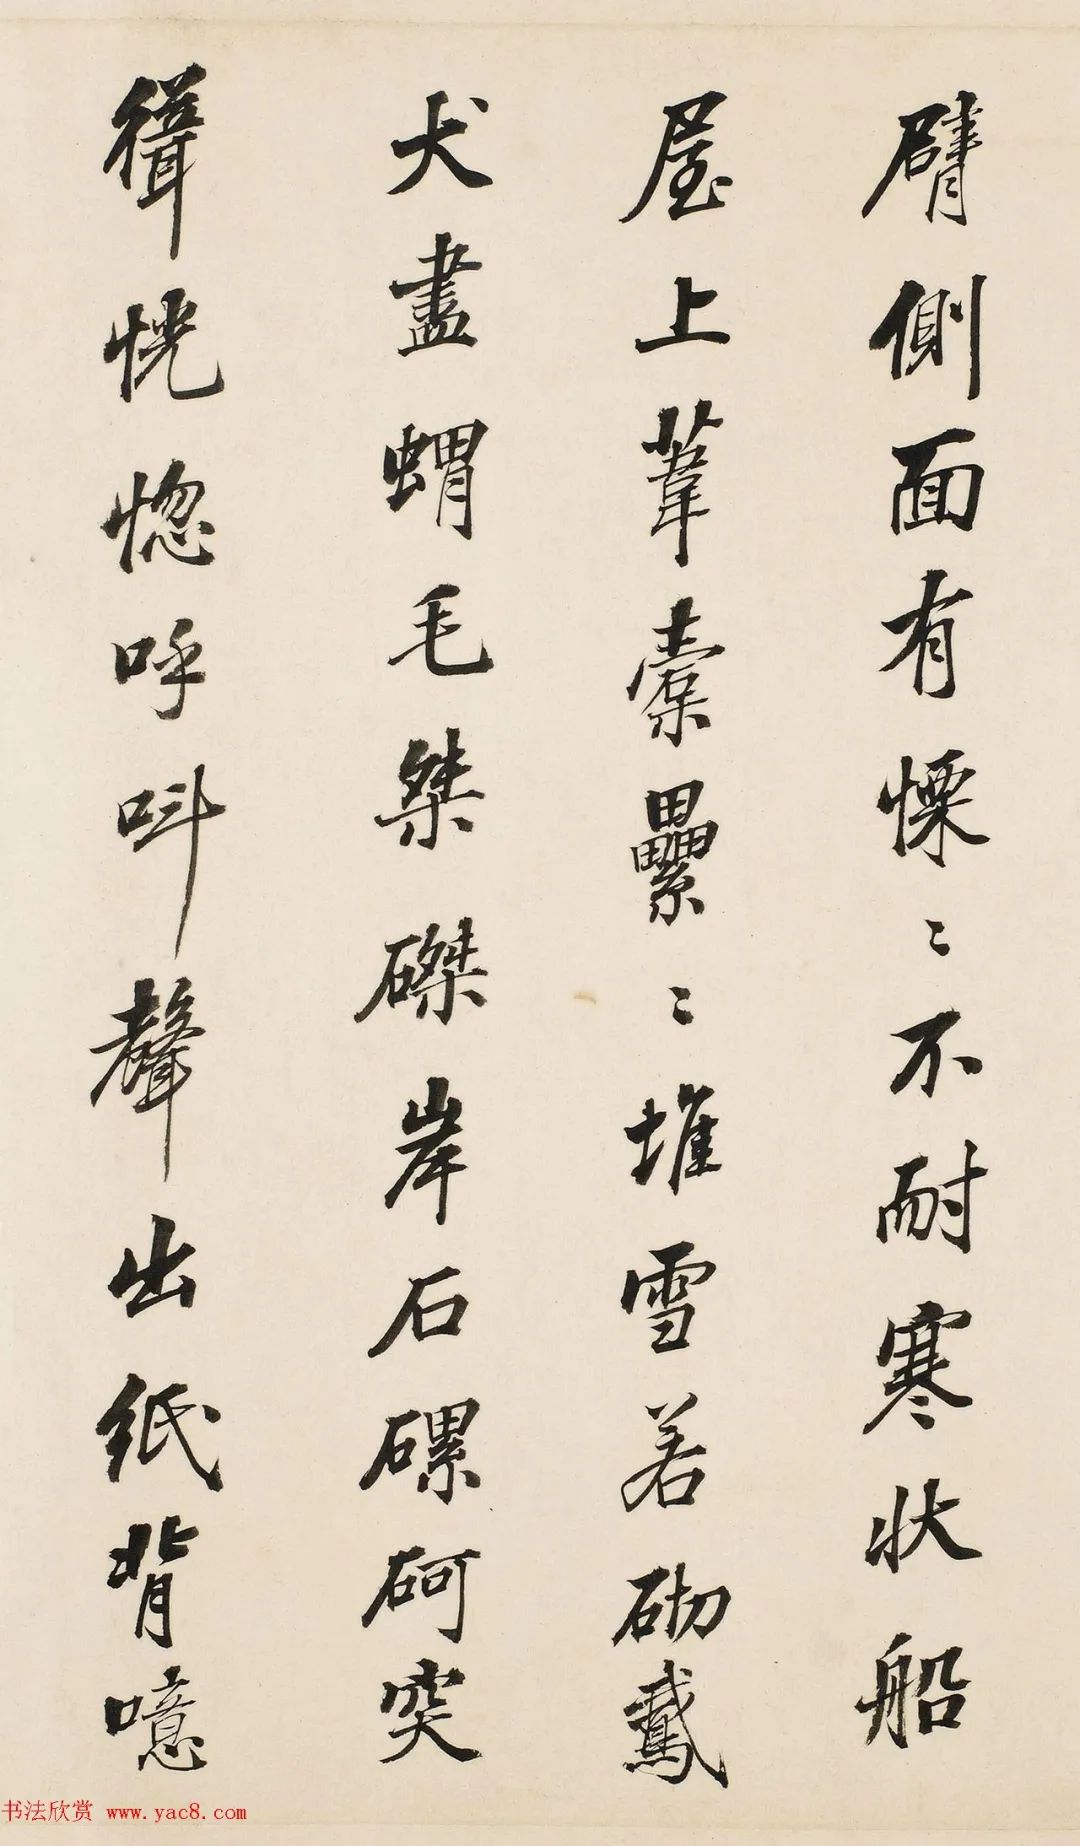 臂側面有慄〻不耐寒狀船
屋上葦橐纍〻堆雪若砌鵞
犬盡蝟毛桀磔岸石磥砢突
緝恍惚呼呌聲出紙背噫
书法欣赏 www.yac8.com